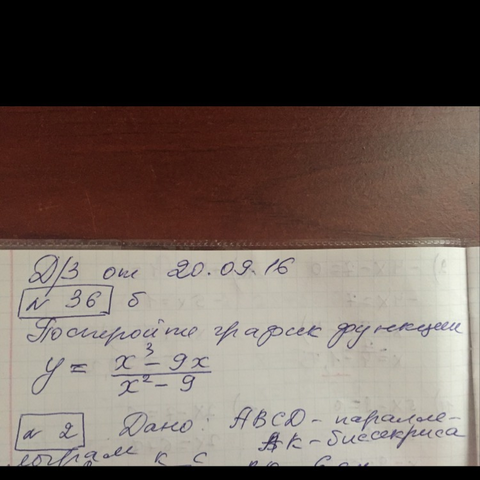 Д/З от 20.09.16
№ 36 б
Постройте график функции
y = x³ - 9x / x² - 9
№ 2 Дано: ABCD - паралле-
AK - биссекриса